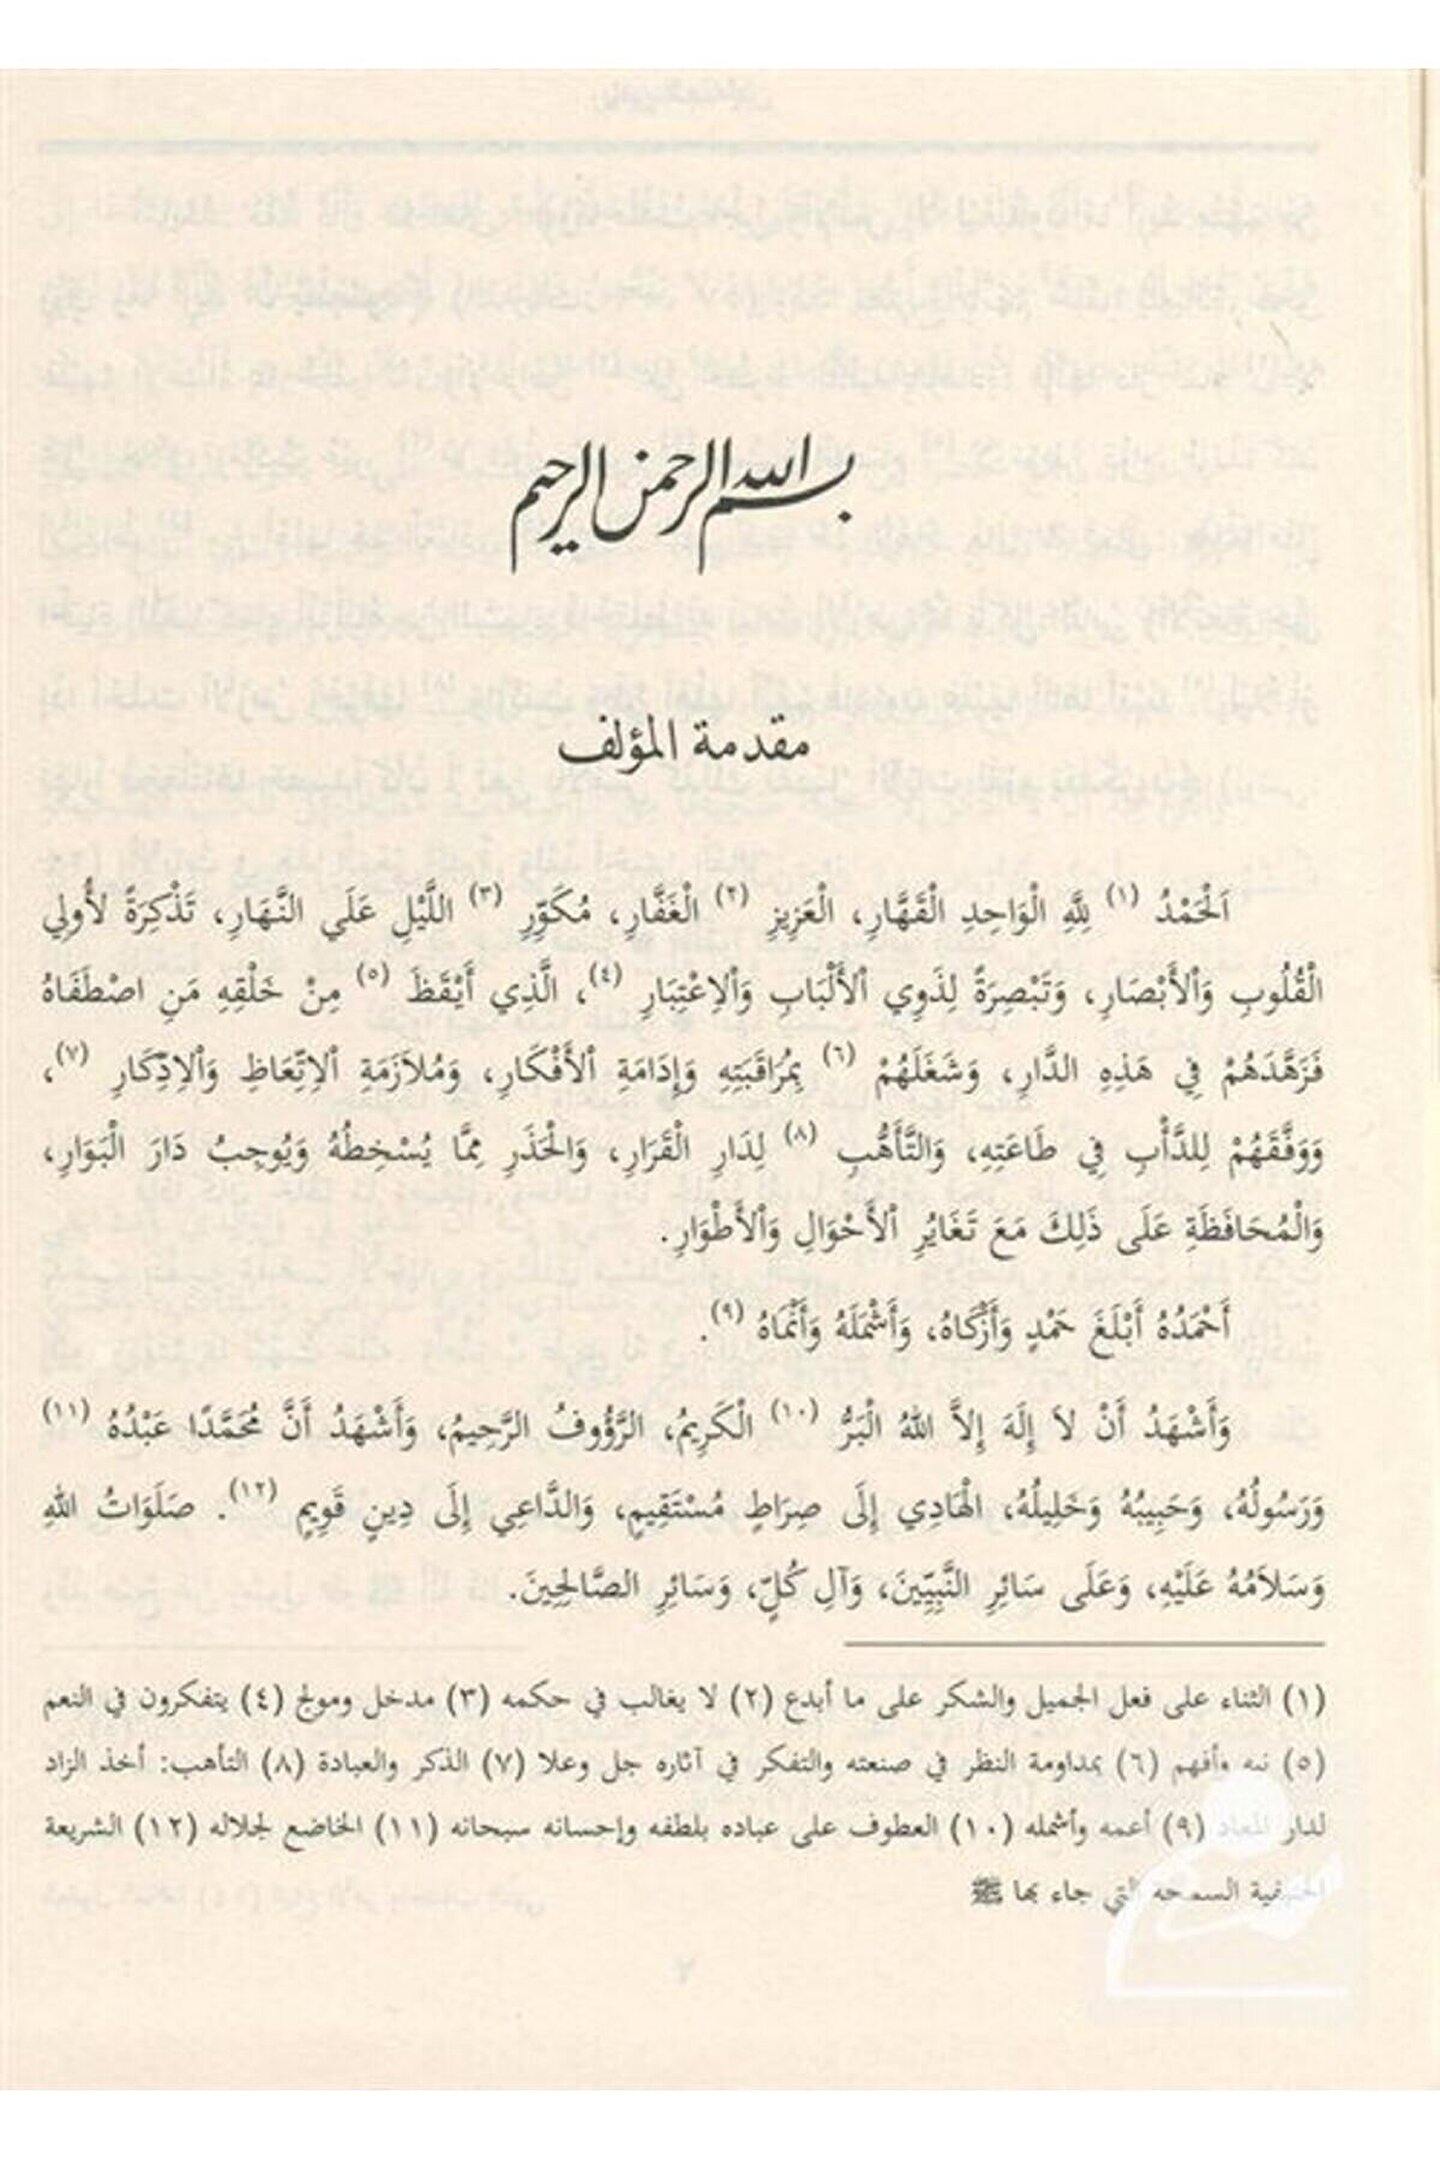 بسم الله الرحمن الرحيم
مقدمة المؤلف
اَلْحَمْدُ (١) لِلَّهِ الْوَاحِدِ الْقَهَّارِ، الْعَزِيزِ (٢) الْغَفَّارِ، مُكَوِّرِ (٣) اللَّيْلِ عَلَي النَّهَارِ، تَذْكِرَةً لأُولِي
الْقُلُوبِ وَالأَبْصَارِ، وَتَبْصِرَةً لِذَوِي الأَلْبَابِ وَالاِعْتِبَارِ (٤)، الَّذِي أَيْقَظَ (٥) مِنْ خَلْقِهِ مَنِ اصْطَفَاهُ
فَزَهَّدَهُمْ فِي هَذِهِ الدَّارِ، وَشَغَلَهُمْ (٦) بِمُرَاقَبَتِهِ وَإِدَامَةِ الأَفْكَارِ، وَمُلاَزَمَةِ الاِتِّعَاظِ وَالاِدِّكَارِ (٧)،
وَوَفَّقَهُمْ لِلدَّأْبِ فِي طَاعَتِهِ، وَالتَّأَهُّبِ (٨) لِدَارِ الْقَرَارِ، وَالْحَذَرِ مِمَّا يُسْخِطُهُ وَيُوجِبُ دَارَ الْبَوَارِ،
وَالْمُحَافَظَةِ عَلَى ذَلِكَ مَعَ تَغَايُرِ الأَحْوَالِ وَالأَطْوَارِ.
أَحْمَدُهُ أَبْلَغَ حَمْدٍ وَأَزْكَاهُ، وَأَشْمَلَهُ وَأَنْمَاهُ (٩).
وَأَشْهَدُ أَنْ لاَ إِلَهَ إِلاَّ اللهُ الْبَرُّ (١٠) الْكَرِيمُ، الرَّؤُوفُ الرَّحِيمُ، وَأَشْهَدُ أَنَّ مُحَمَّدًا عَبْدُهُ (١١)
وَرَسُولُهُ، وَحَبِيبُهُ وَخَلِيلُهُ، الْهَادِي إِلَى صِرَاطٍ مُسْتَقِيمٍ، وَالدَّاعِي إِلَى دِينٍ قَوِيمٍ (١٢). صَلَوَاتُ اللهِ
وَسَلاَمُهُ عَلَيْهِ، وَعَلَى سَائِرِ النَّبِيِّينَ، وَآلِ كُلٍّ، وَسَائِرِ الصَّالِحِينَ.
(١) الثناء على فعل الجميل والشكر على ما أبدع (٢) لا يغالب في حكمه (٣) مدخل ومولج (٤) يتفكرون في النعم
(٥) نبه وأفهم (٦) بمداومة النظر في صنعته والتفكر في آثاره جل وعلا (٧) الذكر والعبادة (٨) التأهب: أخذ الزاد
لدار المعاد (٩) أعمه وأشمله (١٠) العطوف على عباده بلطفه وإحسانه سبحانه (١١) الخاضع لجلاله (١٢) الشريعة
الحنيفية السمحه التي جاء بها ﷺ
٢